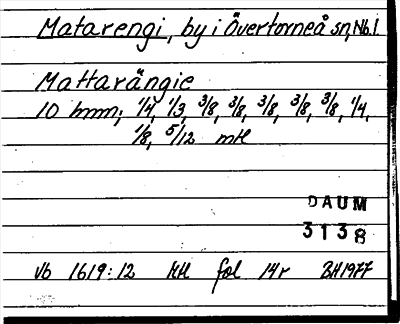 Matarengi, by i Övertorneå sn, Nb.l
Mattarängie
10 hmn; 1/4, 1/3, 3/8, 3/8, 3/8, 3/8, 3/8, 1/4,
1/8, 5/12 mtl
DAUM
3138
Vb 1619:12 KA fol 14r BH1977